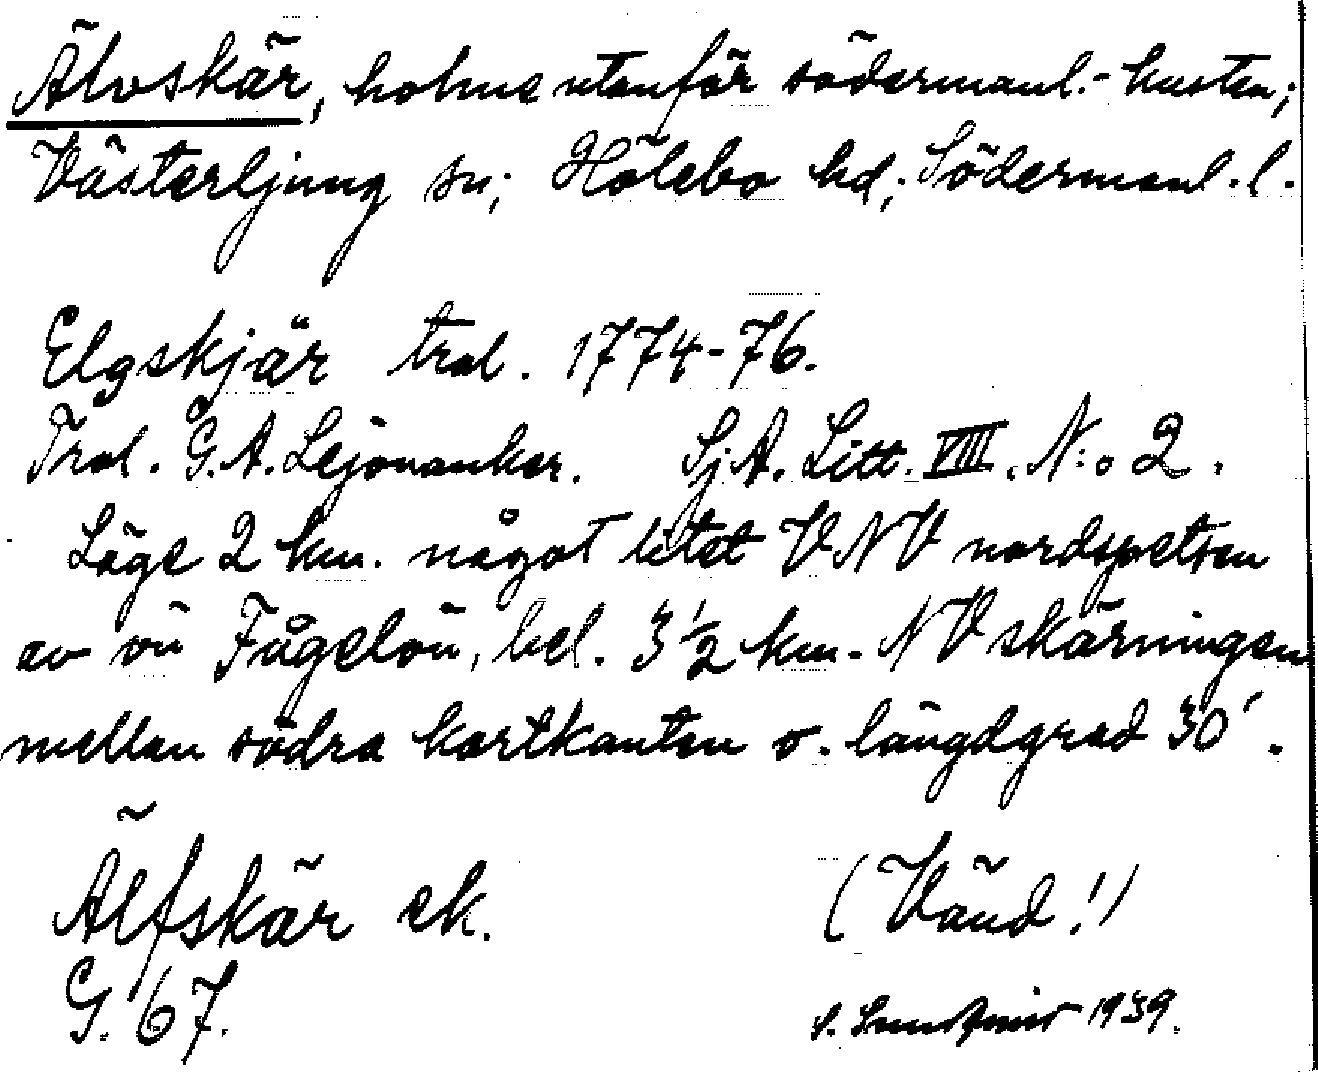 Älvskär, holme utanför södermanl.-kusten;
Västerljung sn; Hölebo hd; Södermanl. l.
Elgskjär tral. 1774-76.
Tral. G. A. Lejonanker. Sj. A. Litt. VIII. N:o 2.
Läge 2 km. något litet VNV nordspetsen
av ön Fågelön, bel. 3 1/2 km. NV skärningen
mellan södra kartkanten o. längdgrad 30'.
Älfskär ek. (Vänd!)
G. 67. 1939.